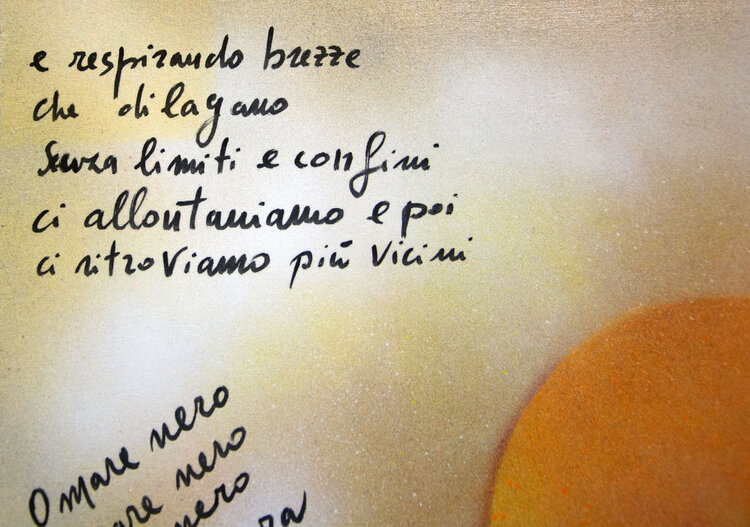 e respirando brezze
che dilagano
senza limiti e confini
ci allontaniamo e poi
ci ritroviamo più vicini
O mare nero
are nero
nero
ra